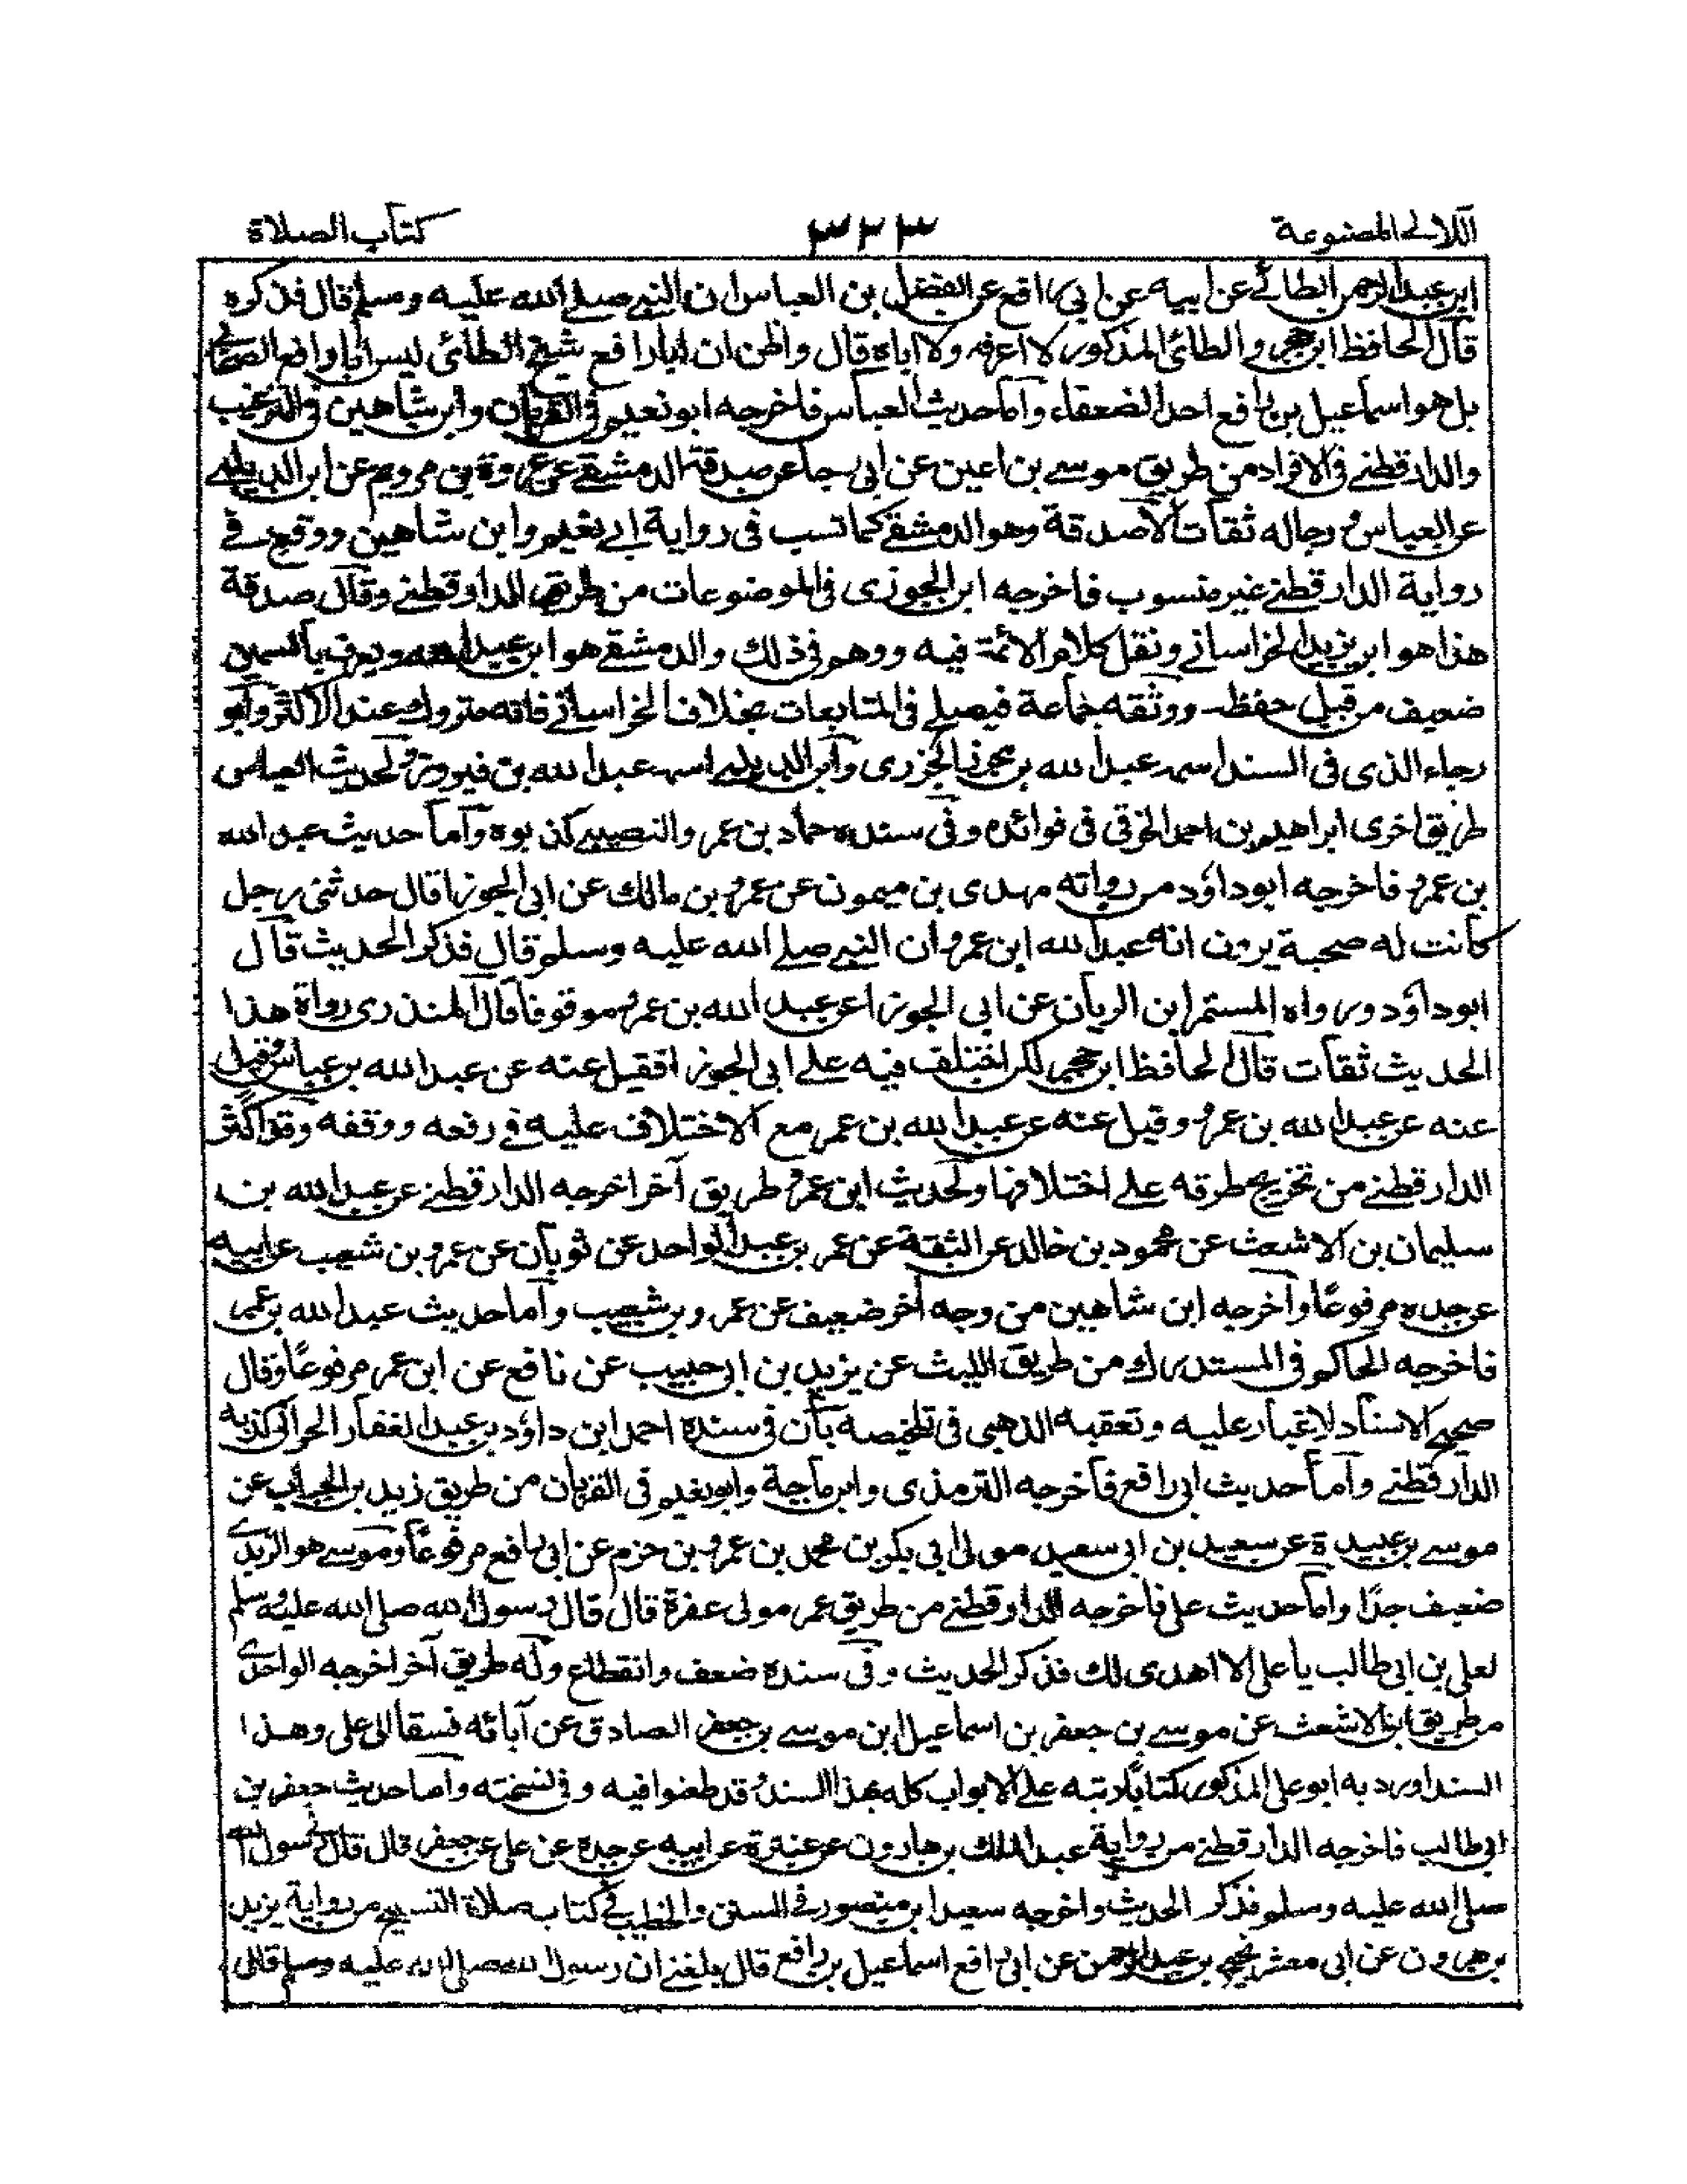 اللآلى المصنوعة ٣٢٣ كتاب الصلاة
ابن عبد الرحمن الطائے عن ابيه عن ابى رافع عن الفضل بن العباس ان النبي صلے الله عليه وسلم قال فذكره
قال الحافظ ابن حجر والطائى المذكور لا اعرفه ولا اباه قال واظن ان ابا رافع شيخ الطائى ليس ابا رافع الصحابى
بل هو اسماعيل بن رافع احد الضعفاء وأما حديث العباس فاخرجه ابو نعيم فى القربان وابن شاهين فى الترغيب
والدارقطنے فى الافراد من طريق موسے بن اعين عن ابى رجاء عن صدقة الدمشقے عن عروة بن رويم عن ابن الديلمے
عن العباس ورجاله ثقات الا صدقة وهو الدمشقے كما نسب فى رواية ابے نعيم وابن شاهين ووقع فے
رواية الدارقطنے غير منسوب فاخرجه ابن الجوزى فى الموضوعات من طريق الدارقطنے وقال صدقة
هذا هو ابن يزيد الخراسانے ونقل كلام الائمة فيه ووهم فى ذلك والدمشقے هو ابن عبد الله ويعرف بالسمين
ضعيف من قبل حفظه ووثقه جماعة فيصلح فى المتابعات بخلاف الخراسانے فانه متروك عند الاكثر وأبو
رجاء الذى فى السند اسمه عبد الله بن محرز الجزرى وابن الديلمے اسمه عبد الله بن فيروز ولحديث العباس
طريق اخرى ابراهيم بن احمد الخرقى فى فوائده وفى سنده حماد بن عمرو النصيبے كذبوه وأما حديث عبد الله
بن عمرو فاخرجه ابو داؤد من رواته مهدى بن ميمون عن عمرو بن مالك عن ابى الجوزا قال حدثنى رجل
كانت له صحبة يرون انه عبد الله ابن عمرو ان النبے صلے الله عليه وسلم قال فذكر الحديث قال
ابو داؤد ورواه المستمر ابن الريان عن ابى الجوزا عن عبد الله بن عمرو موقوفا قال المنذرى رواة هذا
الحديث ثقات قال الحافظ ابن حجر لكن اختلف فيه علے ابى الجوزا فقيل عنه عن عبد الله بن عباس وقيل
عنه عن عبد الله بن عمرو وقيل عنه عن عبد الله بن عمر مع الاختلاف عليه فے رفعه ووقفه وقد اكثر
الدارقطنے من تخريج طرقه علے اختلافها ولحديث ابن عمرو طريق آخر اخرجه الدارقطنے عن عبد الله بن
سليمان بن الاشعث عن محمود بن خالد عن الثقة عن عمر بن عبد الواحد عن ثوبان عن عمرو بن شعيب عن ابيه
عن جده مرفوعًا وأخرجه ابن شاهين من وجه آخر ضعيف عن عمرو بن شعيب وأما حديث عبد الله بن عمر
فاخرجه الحاكم فى المستدرك من طريق الليث عن يزيد بن ابى حبيب عن نافع عن ابن عمر مرفوعًا وقال
صحيح الاسناد لا غبار عليه وتعقبه الذهبى فى تلخيصه بأن فى سنده احمد ابن داؤد بن عبد الغفار الحرانى كذبه
الدارقطنے وأما حديث ابى رافع فأخرجه الترمذى وابن ماجة وابو نعيم فى القربان من طريق زيد بن الحباب عن
موسے بن عبيدة عن سعيد بن ابى سعيد مولى ابى بكر بن محمد بن عمرو بن حزم عن ابى رافع مرفوعًا وموسے هو الربذى
ضعيف جدًا وأما حديث على فأخرجه الدارقطنے من طريق عمر مولى عفرة قال قال رسول الله صلى الله عليه وسلم
لعلى بن ابى طالب يا على الا اهدى لك فذكر الحديث وفى سنده ضعف وانقطاع وله طريق آخر اخرجه الواحدى
من طريق ابن الاشعث عن موسے بن جعفر بن اسماعيل ابن موسے بن جعفر الصادق عن آبائه نسقا الى على وهذا
السند اورد به ابو على المذكور كتابًا رتبه علے الابواب كله بهذا السند وقد طعنوا فيه وفى نسخته وأما حديث جعفر بن
ابى طالب فاخرجه الدارقطنے من رواية عبد الملك بن هارون عن عنترة عن ابيه عن جده عن على عن جعفر قال قال رسول الله
صلى الله عليه وسلم فذكر الحديث واخرجه سعيد ابن منصور فے السنن والخطيب فے كتاب صلاة التسبيح من رواية يزيد
بن هرون عن ابى معشر نجيح بن عبد الرحمن عن ابى رافع اسماعيل بن رافع قال بلغنے ان رسول الله صلى الله عليه وسلم قال